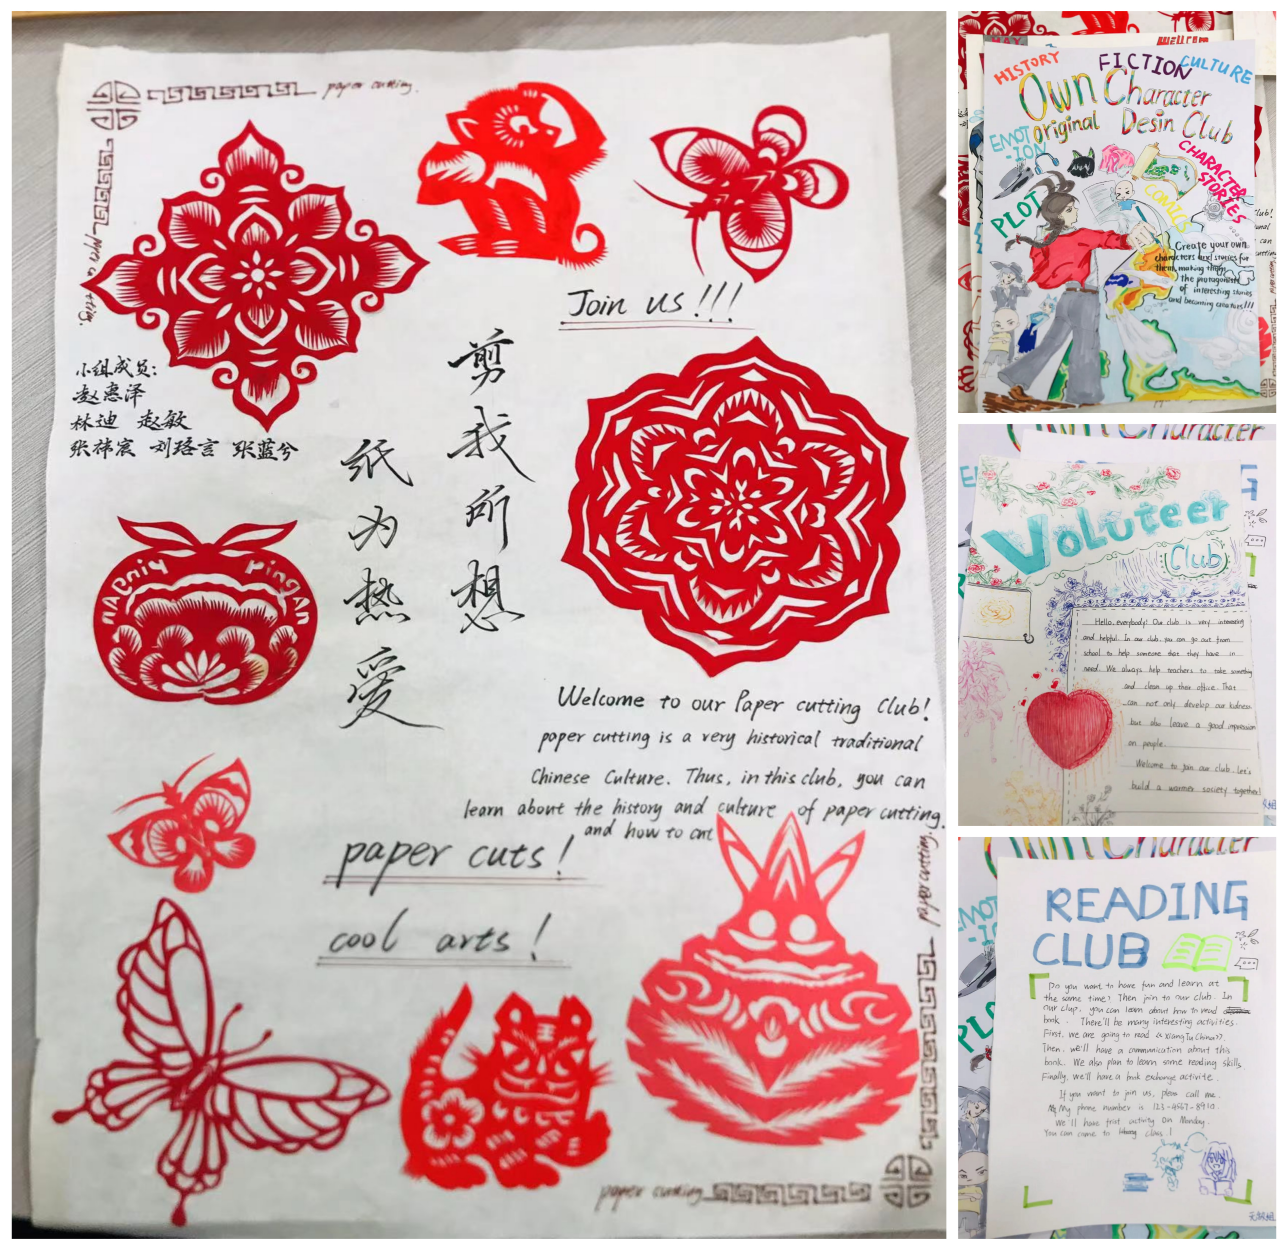 paper cutting.
paper cutting.
Join us!!!
剪我所想
纸为热爱
小组成员:
赵惠泽
林迪 赵敏
张祎宸 刘珞言 张蓝兮
Ping An
Welcome to our Paper cutting Club!
paper cutting is a very historical traditional
Chinese Culture. Thus, in this club, you can
learn about the history and culture of paper cutting.
and how to cut
paper cuts!
cool arts!
paper cutting.
paper cutting
HISTORY
FICTION
CULTURE
Own Character
original Desin Club
EMOT
-ION
CHARACTER
STORIES
PLOT
COMICS
Create your own
characters and stories for
them, making them
the protagonists
of interesting stories
and becoming creators!!!
Voluteer
Club
Hello, everybody! Our club is very interesting
and helpful. In our club, you can go out from
school to help someone that they have in
need. We always help teachers to take something
and clean up their office. That
can not only develop our kidness
but also leave a good impression
on people.
Welcome to join our club. Let's
build a warmer society together!
READING
CLUB
Do you want to have fun and learn at
the same time? Then join to our club. In
our club, you can learn about how to read
book. There'll be many interesting activities.
First, we are going to read 《XiangTu China》.
Then, we'll have a communication about this
book. We also plan to learn some reading skills.
Finally, we'll have a book exchange activite.
If you want to join us, please call me.
My phone number is 123-4567-8910.
We'll have frist activity on Monday.
You can come to class!